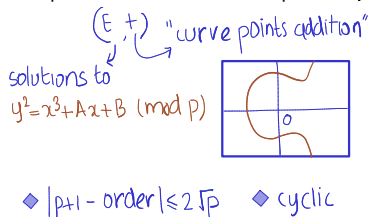 (E, +) "curve points addition"
solutions to
y²=x³+Ax+B (mod p)
0
|p+1 - order| ≤ 2√p
cyclic